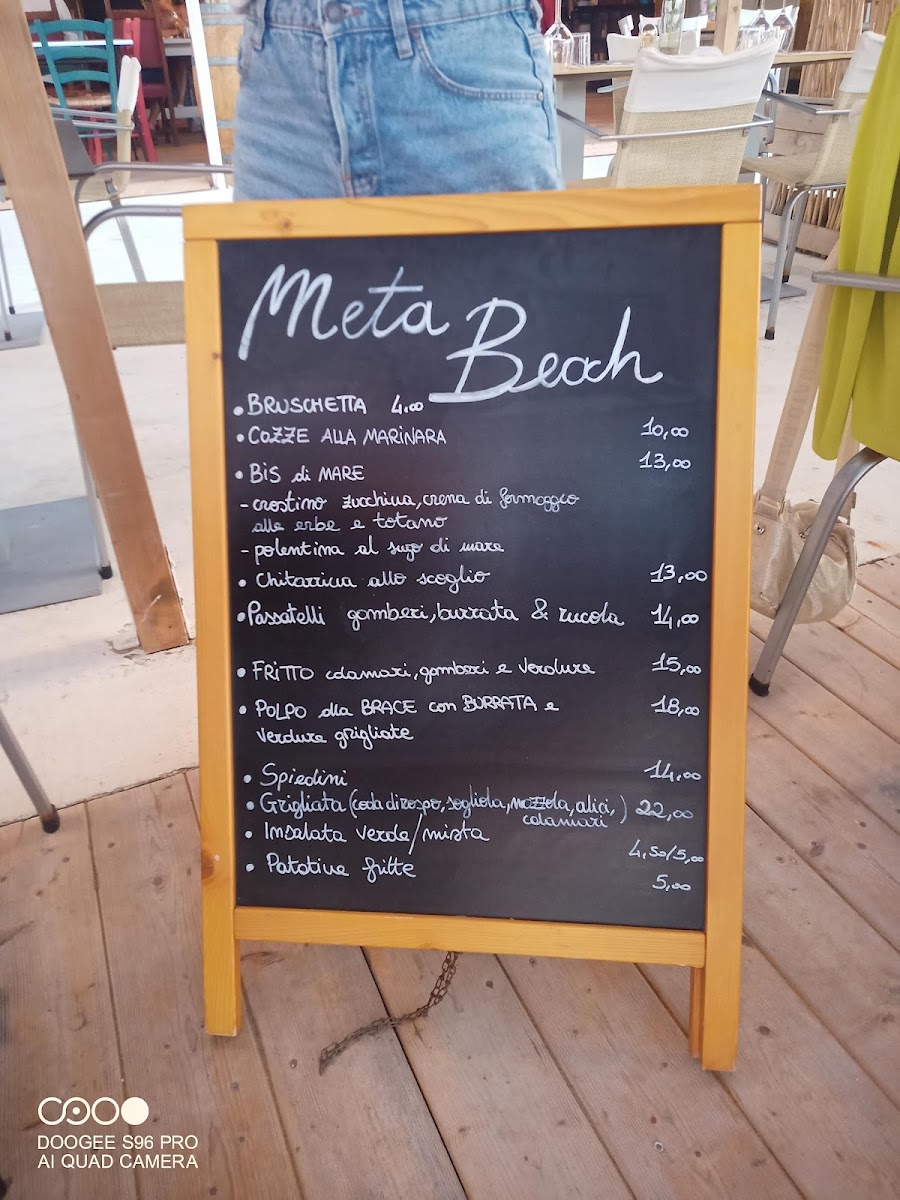 Meta
Beach
• BRUSCHETTA 4,00
• COZZE ALLA MARINARA 10,00
• BIS di MARE 13,00
- crostino zucchina, crema di formaggio
alle erbe e totano
- polentina al sugo di mare
• Chitarrina allo scoglio 13,00
• Passatelli gamberi, burrata & rucola 14,00
• FRITTO calamari, gamberi e verdure 15,00
• POLPO alla BRACE con BURRATA e 18,00
verdure grigliate
• Spiedini 14,00
• Grigliata (coda di rospo, sogliola, mazzola, alici, ) 22,00
calamari
• Insalata verde/mista 4,50/5,00
• Patatine fritte 5,00
DOOGEE S96 PRO
AI QUAD CAMERA